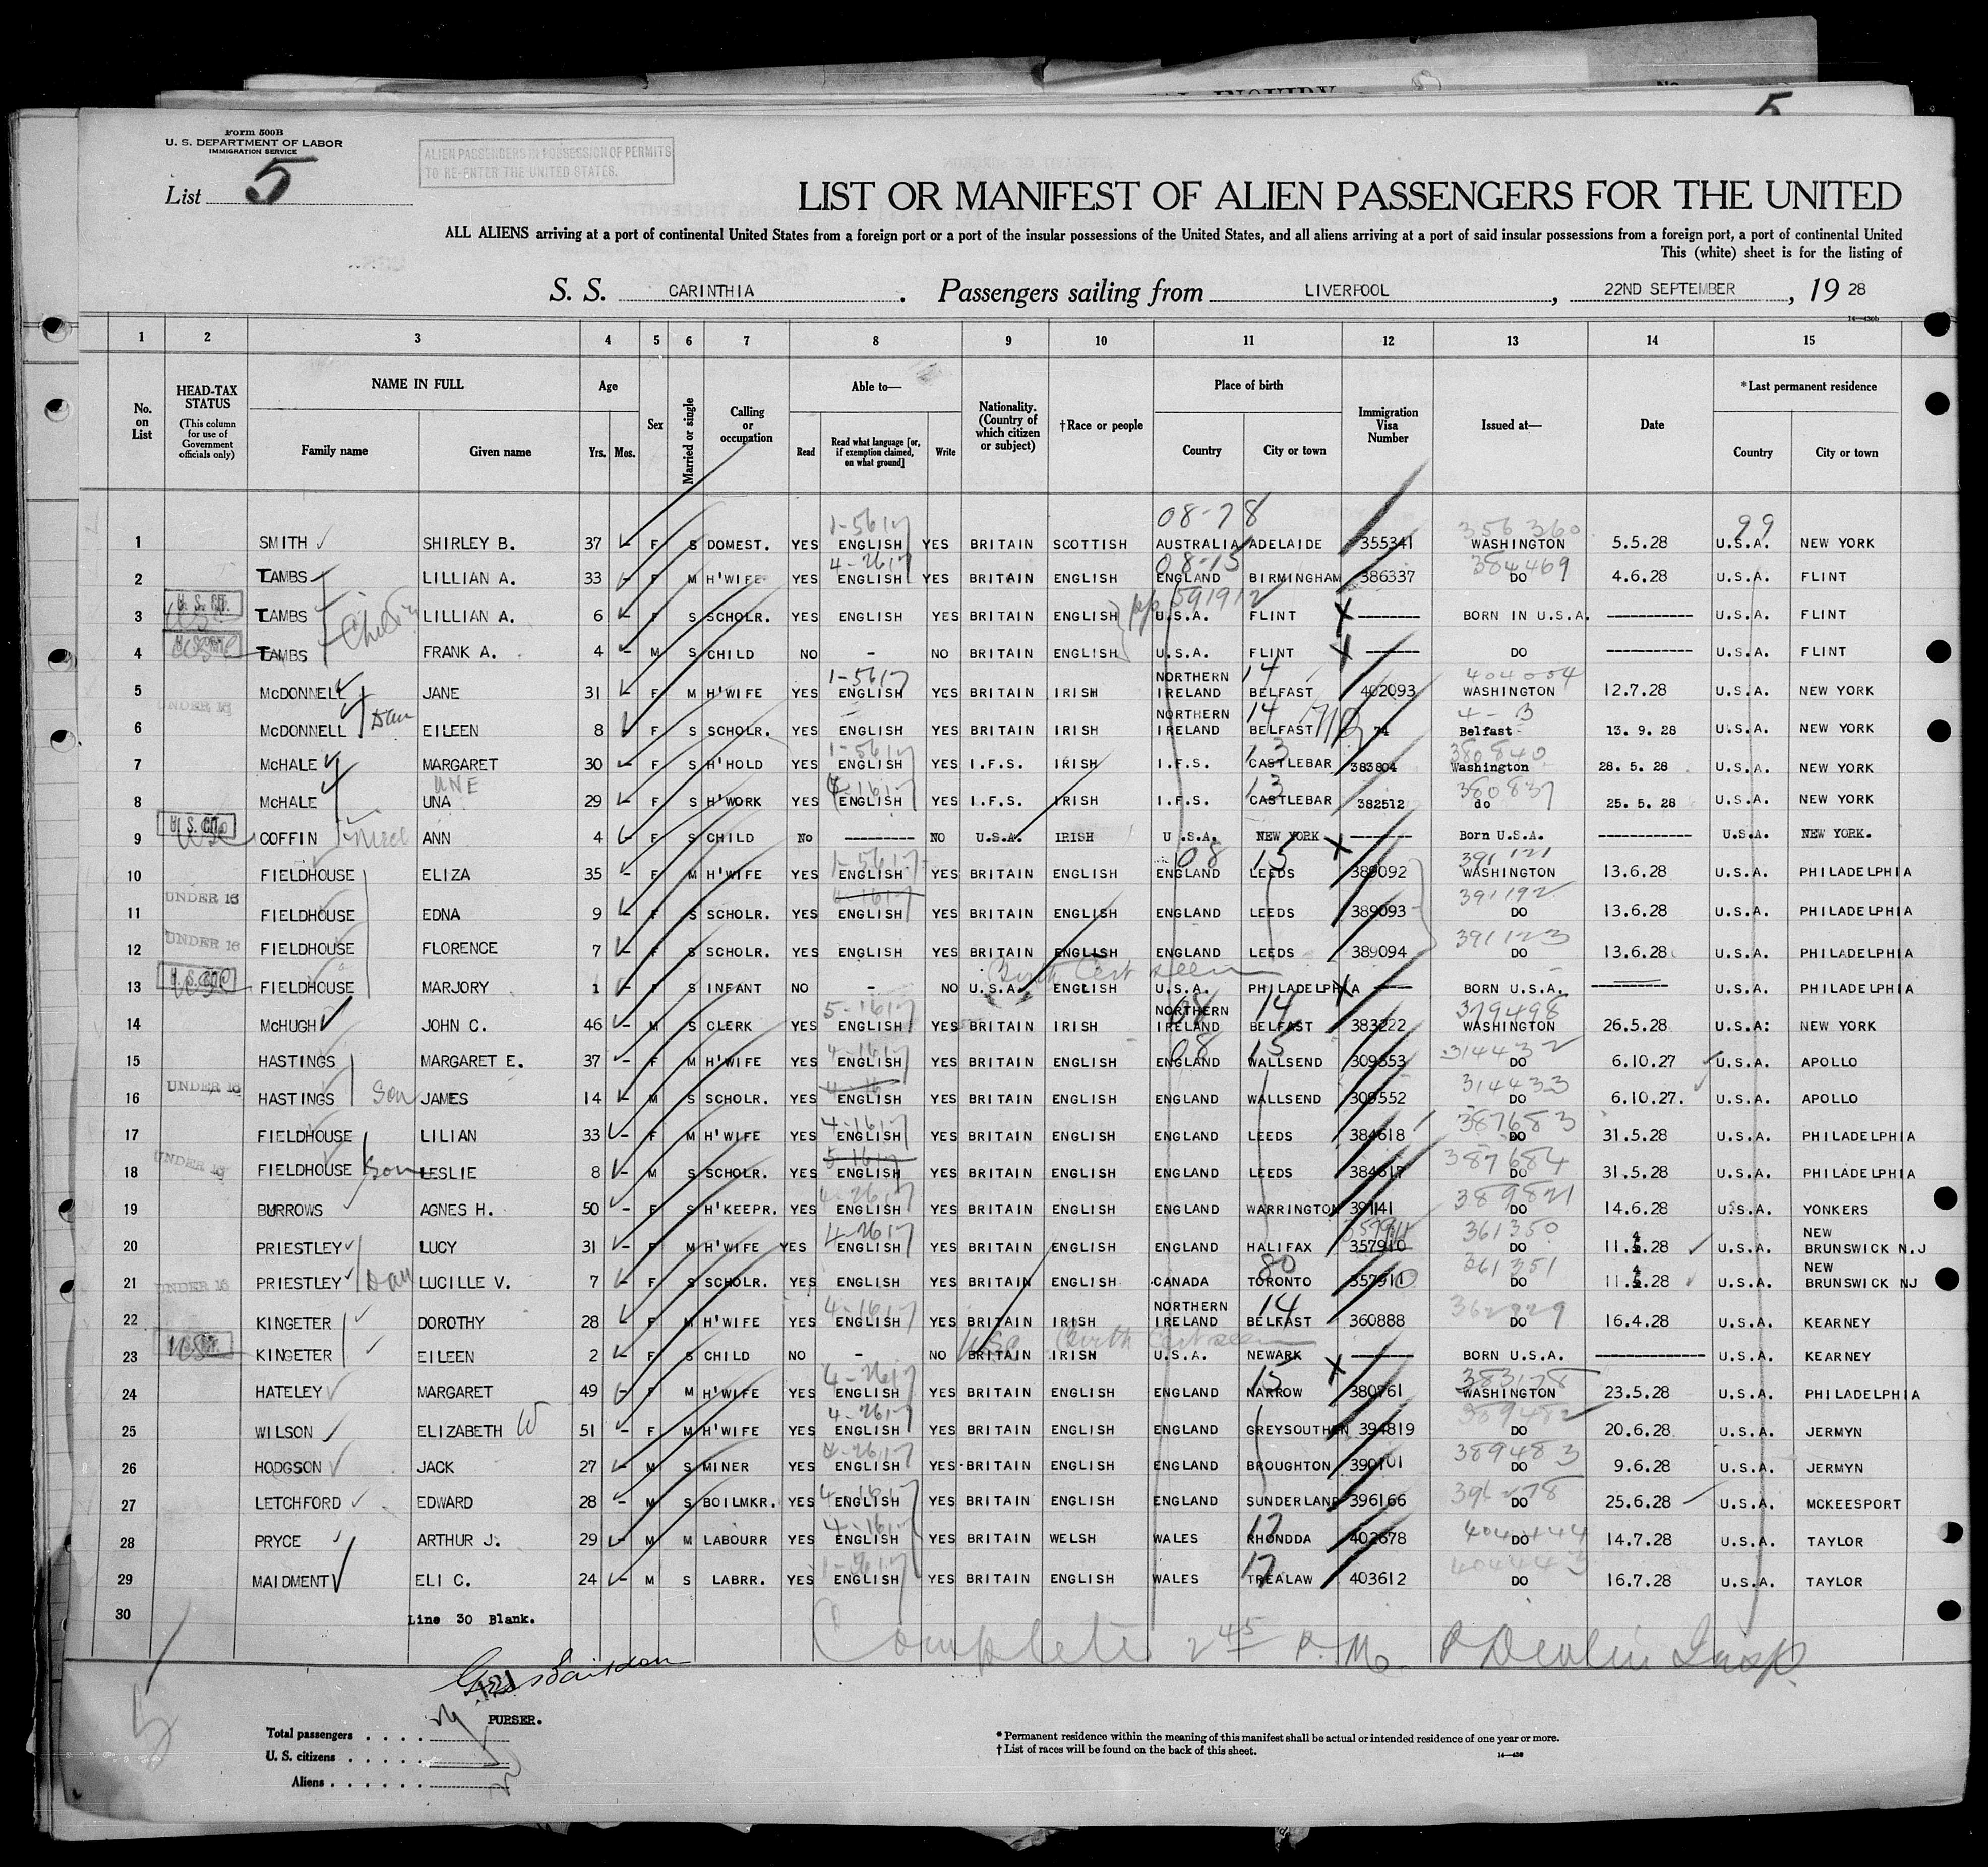 5
Form 500B
U. S. DEPARTMENT OF LABOR
IMMIGRATION SERVICE
List 5
ALIEN PASSENGERS IN POSSESSION OF PERMITS
TO RE-ENTER THE UNITED STATES.
LIST OR MANIFEST OF ALIEN PASSENGERS FOR THE UNITED
ALL ALIENS arriving at a port of continental United States from a foreign port or a port of the insular possessions of the United States, and all aliens arriving at a port of said insular possessions from a foreign port, a port of continental United
This (white) sheet is for the listing of
S. S. CARINTHIA. Passengers sailing from LIVERPOOL, 22ND SEPTEMBER, 19 28
1 2 3 4 5 6 7 8 9 10 11 12 13 14 15
No. on List
HEAD-TAX STATUS (This column for use of Government officials only)
NAME IN FULL Family name Given name
Age Yrs. Mos.
Sex
Married or single
Calling or occupation
Able to— Read Read what language [or, if exemption claimed, on what ground] Write
Nationality. (Country of which citizen or subject)
†Race or people
Place of birth Country City or town
Immigration Visa Number
Issued at—
Date
*Last permanent residence Country City or town
08-78 99
1 SMITH SHIRLEY B. 37 - F S DOMEST. YES ENGLISH YES BRITAIN SCOTTISH AUSTRALIA ADELAIDE 355341 WASHINGTON 5.5.28 U.S.A. NEW YORK
2 TAMBS LILLIAN A. 33 - F M H'WIFE YES ENGLISH YES BRITAIN ENGLISH ENGLAND BIRMINGHAM 386337 DO 4.6.28 U.S.A. FLINT
3 TAMBS LILLIAN A. 6 - F S SCHOLR. YES ENGLISH YES BRITAIN ENGLISH U.S.A. FLINT -------- BORN IN U.S.A. ----------- U.S.A. FLINT
4 TAMBS FRANK A. 4 - M S CHILD NO - NO BRITAIN ENGLISH U.S.A. FLINT ------- DO ----------- U.S.A. FLINT
5 McDONNELL JANE 31 - F M H'WIFE YES ENGLISH YES BRITAIN IRISH NORTHERN IRELAND BELFAST 402093 WASHINGTON 12.7.28 U.S.A. NEW YORK
UNDER 16
6 McDONNELL EILEEN 8 F S SCHOLR. YES ENGLISH YES BRITAIN IRISH NORTHERN IRELAND BELFAST 74 Belfast 13. 9. 28 U.S.A. NEW YORK
7 McHALE MARGARET 30 - F S H'HOLD YES ENGLISH YES I.F.S. IRISH I.F.S. CASTLEBAR 383804 Washington 28. 5. 28 U.S.A. NEW YORK
8 McHALE UNA 29 - F S H'WORK YES ENGLISH YES I.F.S. IRISH I.F.S. CASTLEBAR 382512 do 25. 5. 28 U.S.A. NEW YORK
9 COFFIN ANN 4 F S CHILD No --------- NO U.S.A. IRISH U.S.A. NEW YORK -------- Born U.S.A. ------------ U.S.A. NEW YORK.
10 FIELDHOUSE ELIZA 35 - F M H'WIFE YES ENGLISH YES BRITAIN ENGLISH ENGLAND LEEDS 389092 WASHINGTON 13.6.28 U.S.A. PHILADELPHIA
UNDER 16
11 FIELDHOUSE EDNA 9 - F S SCHOLR. YES ENGLISH YES BRITAIN ENGLISH ENGLAND LEEDS 389093 DO 13.6.28 U.S.A. PHILADELPHIA
UNDER 16
12 FIELDHOUSE FLORENCE 7 - F S SCHOLR. YES ENGLISH YES BRITAIN ENGLISH ENGLAND LEEDS 389094 DO 13.6.28 U.S.A. PHILADELPHIA
Birth Cert seen
13 FIELDHOUSE MARJORY 1 - F S INFANT NO - NO U.S.A. ENGLISH U.S.A. PHILADELPHIA ----- BORN U.S.A. ----------- U.S.A. PHILADELPHIA
14 McHUGH JOHN C. 46 - M S CLERK YES ENGLISH YES BRITAIN IRISH NORTHERN IRELAND BELFAST 383222 WASHINGTON 26.5.28 U.S.A: NEW YORK
15 HASTINGS MARGARET E. 37 - F M H'WIFE YES ENGLISH YES BRITAIN ENGLISH ENGLAND WALLSEND 309553 DO 6.10.27 U.S.A. APOLLO
UNDER 16
16 HASTINGS Son JAMES 14 - M S SCHOLR. YES ENGLISH YES BRITAIN ENGLISH ENGLAND WALLSEND 309552 DO 6.10.27. U.S.A. APOLLO
17 FIELDHOUSE LILIAN 33 - F M H'WIFE YES ENGLISH YES BRITAIN ENGLISH ENGLAND LEEDS 384618 DO 31.5.28 U.S.A. PHILADELPHIA
UNDER 16
18 FIELDHOUSE Son LESLIE 8 - M S SCHOLR. YES ENGLISH YES BRITAIN ENGLISH ENGLAND LEEDS 384617 DO 31.5.28 U.S.A. PHILADELPHIA
19 BURROWS AGNES H. 50 - F S H'KEEPR. YES ENGLISH YES BRITAIN ENGLISH ENGLAND WARRINGTON 391141 DO 14.6.28 U.S.A. YONKERS
20 PRIESTLEY LUCY 31 - F M H'WIFE YES ENGLISH YES BRITAIN ENGLISH ENGLAND HALIFAX 357910 DO 11.4.28 U.S.A. NEW BRUNSWICK N.J
UNDER 16
21 PRIESTLEY Dau LUCILLE V. 7 - F S SCHOLR. YES ENGLISH YES BRITAIN ENGLISH CANADA TORONTO 357911 DO 11.4.28 U.S.A. NEW BRUNSWICK NJ
22 KINGETER DOROTHY 28 F M H'WIFE YES ENGLISH YES BRITAIN IRISH NORTHERN IRELAND BELFAST 360888 DO 16.4.28 U.S.A. KEARNEY
USA Birth Cert seen
23 KINGETER EILEEN 2 - F S CHILD NO - NO BRITAIN IRISH U.S.A. NEWARK -------- BORN U.S.A. ------------- U.S.A. KEARNEY
24 HATELEY MARGARET 49 - F M H'WIFE YES ENGLISH YES BRITAIN ENGLISH ENGLAND NARROW 380761 WASHINGTON 23.5.28 U.S.A. PHILADELPHIA
25 WILSON ELIZABETH W 51 - F M H'WIFE YES ENGLISH YES BRITAIN ENGLISH ENGLAND GREYSOUTHEN 394819 DO 20.6.28 U.S.A. JERMYN
26 HODGSON JACK 27 - M S MINER YES ENGLISH YES BRITAIN ENGLISH ENGLAND BROUGHTON 390101 DO 9.6.28 U.S.A. JERMYN
27 LETCHFORD EDWARD 28 - M S BOILMKR. YES ENGLISH YES BRITAIN ENGLISH ENGLAND SUNDERLAND 396166 DO 25.6.28 U.S.A. MCKEESPORT
28 PRYCE ARTHUR J. 29 - M M LABOURR YES ENGLISH YES BRITAIN WELSH WALES RHONDDA 402678 DO 14.7.28 U.S.A. TAYLOR
29 MAIDMENT ELI C. 24 - M S LABRR. YES ENGLISH YES BRITAIN ENGLISH WALES TREALAW 403612 DO 16.7.28 U.S.A. TAYLOR
30 Line 30 Blank.
Complete 2 45 P.M. P Devlin Insp
PURSER.
Total passengers . . . .
U. S. citizens . . . . .
Aliens . . . . . .
* Permanent residence within the meaning of this manifest shall be actual or intended residence of one year or more.
† List of races will be found on the back of this sheet.